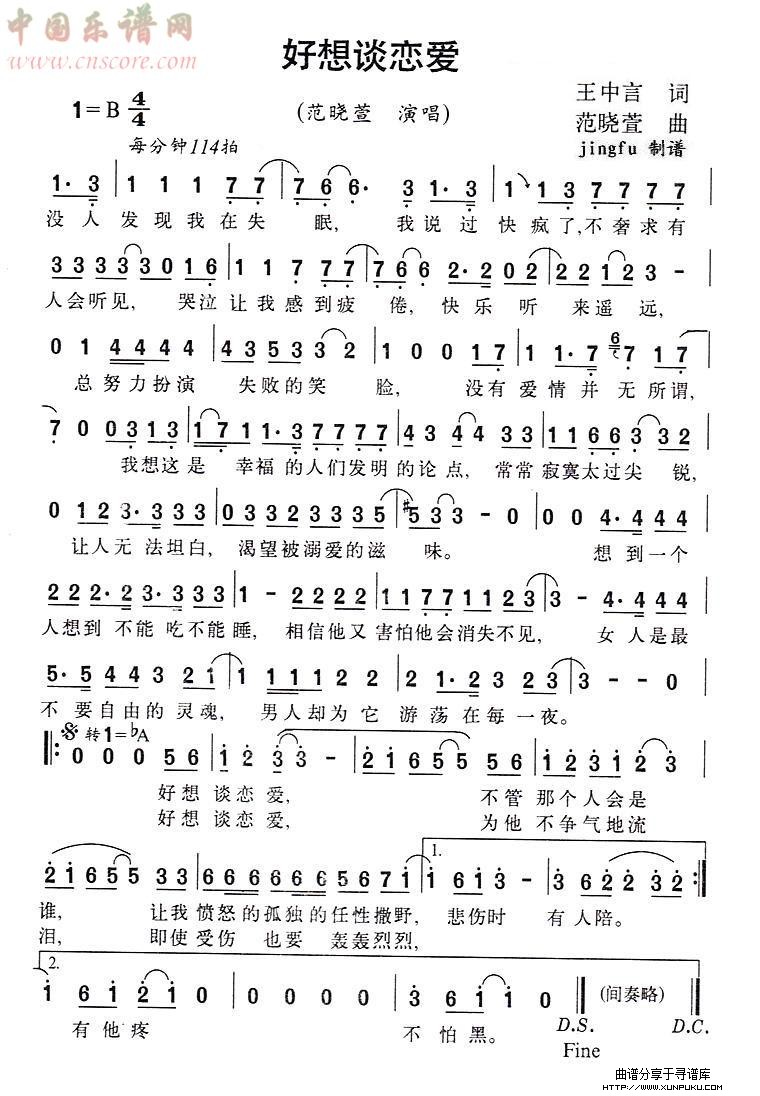 中国乐谱网
www.cnscore.com
好想谈恋爱
1=B 4/4
(范晓萱 演唱)
王中言 词
范晓萱 曲
每分钟114拍
jingfu 制谱
没人 发现我在失 眠, 我说过 快疯了,不奢求有
人会听见, 哭泣让我感到疲 倦, 快乐 听 来遥远,
总努力扮演 失败的笑 脸, 没有爱情并无所谓,
我想这是 幸福 的人们发明的论点, 常常寂寞太过尖 锐,
让人无 法坦白, 渴望被溺爱的滋 味。 想到一个
人想到 不能 吃不能睡, 相信他又害怕他会消失不见, 女人是最
不 要自由的灵魂, 男人却为它 游荡在每一夜。
转1=♭A
好想 谈恋 爱, 不管 那个人会是
好想 谈恋 爱, 为他 不争气地流
1.
谁, 让我 愤怒的孤独的任性撒野, 悲伤时 有人陪。
泪, 即使 受伤 也要 轰轰烈烈,
2.
(间奏略)
有他疼 不怕黑。
D.S. D.C.
Fine
曲谱分享于寻谱库
HTTP://WWW.XUNPUKU.COM